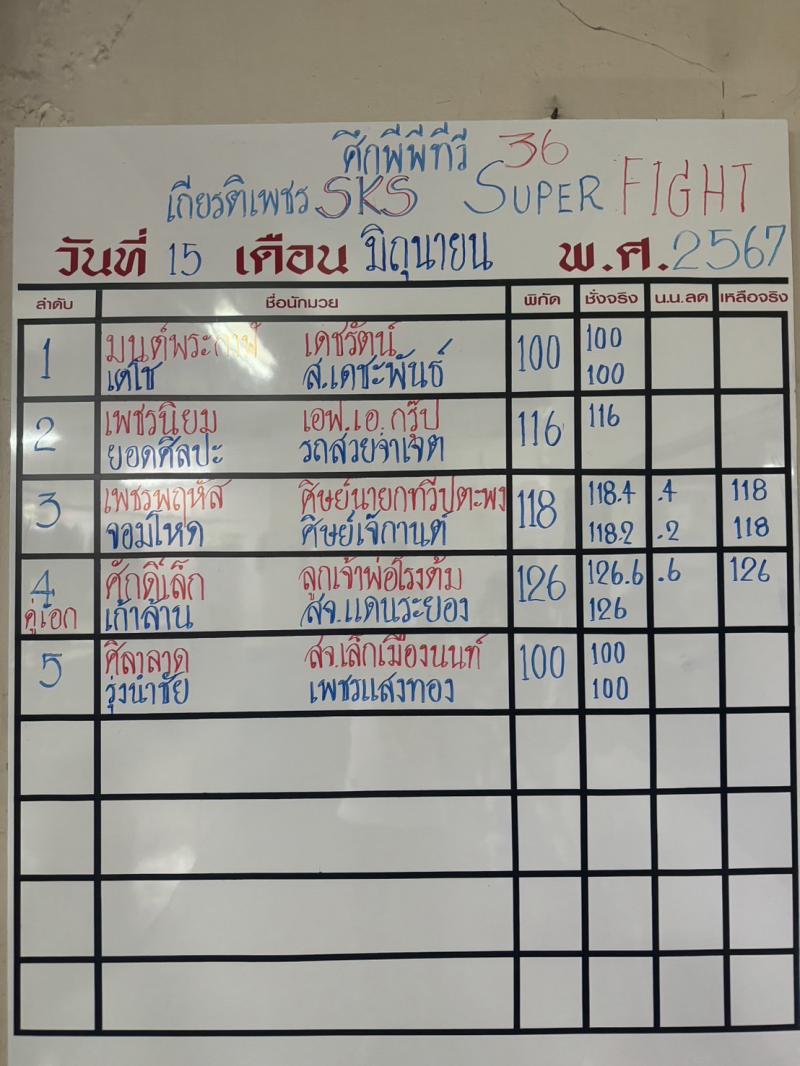 ศึกพีพีทีวี 36
เกียรติเพชร SKS SUPER FIGHT
วันที่ 15 เดือน มิถุนายน พ.ศ. 2567
ลำดับ ชื่อนักมวย พิกัด ชั่งจริง น.น.ลด เหลือจริง
1 มนต์พระกาฬ เดชรัตน์ 100 100
เดโช ส.เดชะพันธ์ 100
2 เพชรนิยม เอฟ.เอ.กรุ๊ป 116 116
ยอดศิลปะ รถสวยจ่าเจต
3 เพชรพฤหัส ศิษย์นายกทวีปตะพง 118 118.4 .4 118
จอมโหด ศิษย์เจ๊กานต์ 118.2 .2 118
4 ศักดิ์เล็ก ลูกเจ้าพ่อโรงต้ม 126 126.6 .6 126
คู่เอก เก้าล้าน สจ.แดนระยอง 126
5 ศิลาลาด สจ.เล็กเมืองนนท์ 100 100
รุ่งนำชัย เพชรแสงทอง 100